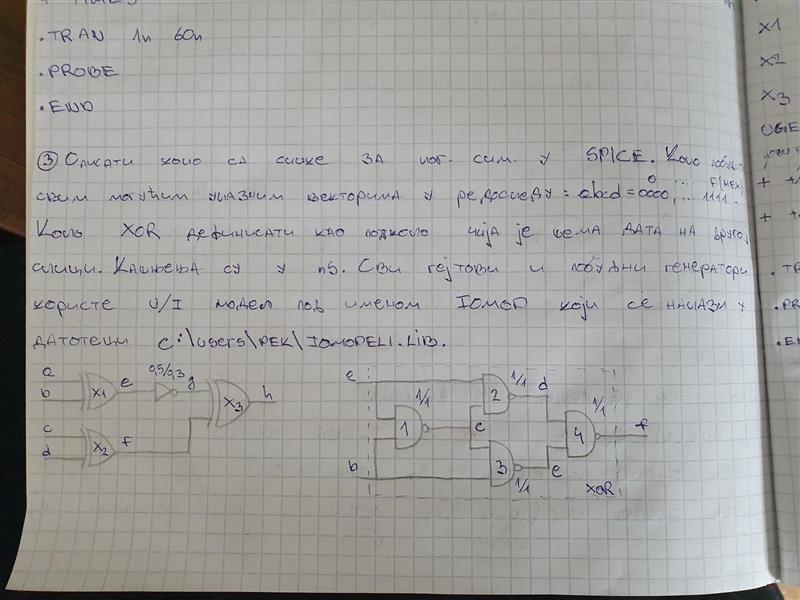 .TRAN 1n 60n
.PROBE
.END
③ Описати коло са слике за лог. сим. у SPICE. Коло побуд
0 ... F(HEX)
свим могућим улазним векторима у редоследу: abcd = 0000, ... 1111.
Коло XOR дефинисати као подколо чија је шема дата на другој
слици. Кашњења су у ns. Сви гејтови и побудни генератори
користе U/I модел под именом IOMOD који се налази у
датотеци C:\users\PEK\IOMODELI.LIB.
a
b
X1
e
0,5/0,3
g
X3
h
c
d
X2
f
a
b
1/1
1
c
2
1/1
d
3
1/1
e
4
1/1
f
XOR
X1
X2
X3
+
+
.PR
.E